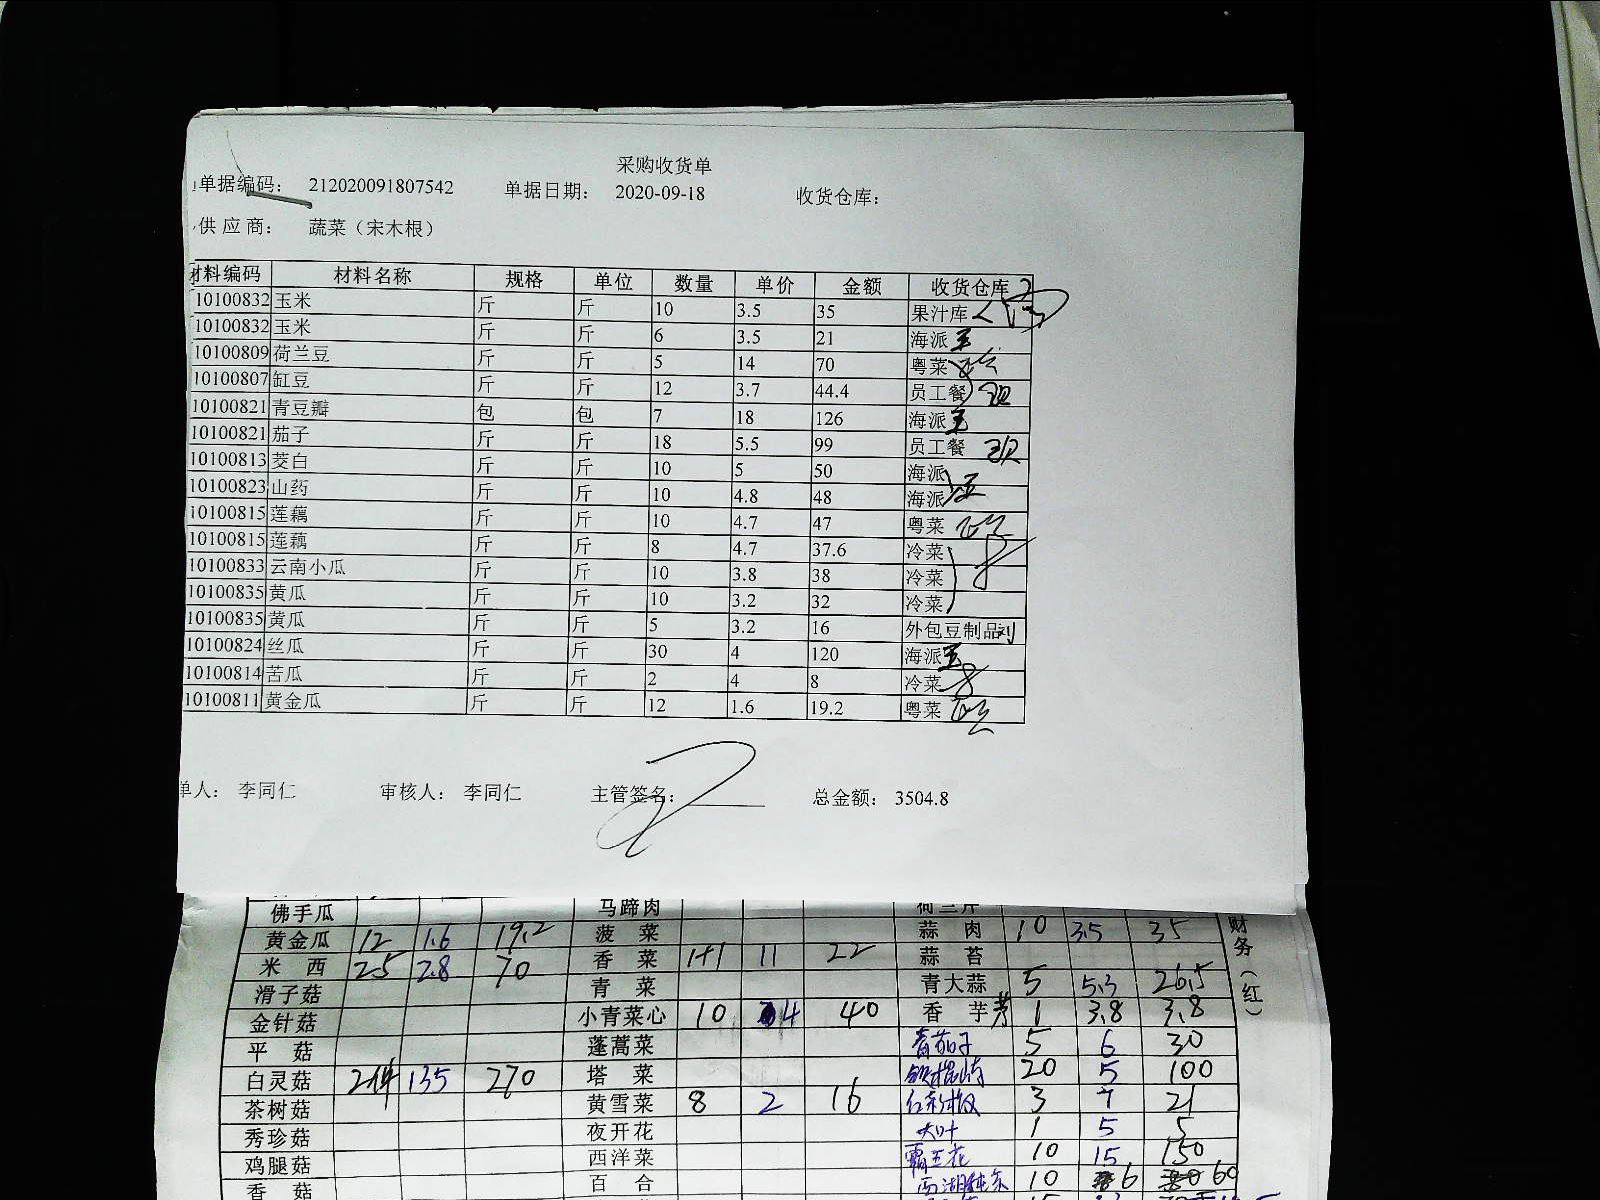 采购收货单
单据编码： 212020091807542 单据日期： 2020-09-18 收货仓库：
供应商： 蔬菜（宋木根）
材料编码 材料名称 规格 单位 数量 单价 金额 收货仓库
10100832 玉米 斤 斤 10 3.5 35 果汁库
10100832 玉米 斤 斤 6 3.5 21 海派
10100809 荷兰豆 斤 斤 5 14 70 粤菜
10100807 缸豆 斤 斤 12 3.7 44.4 员工餐
10100821 青豆瓣 包 包 7 18 126 海派
10100821 茄子 斤 斤 18 5.5 99 员工餐
10100813 茭白 斤 斤 10 5 50 海派
10100823 山药 斤 斤 10 4.8 48 海派
10100815 莲藕 斤 斤 10 4.7 47 粤菜
10100815 莲藕 斤 斤 8 4.7 37.6 冷菜
10100833 云南小瓜 斤 斤 10 3.8 38 冷菜
10100835 黄瓜 斤 斤 10 3.2 32 冷菜
10100835 黄瓜 斤 斤 5 3.2 16 外包豆制品
10100824 丝瓜 斤 斤 30 4 120 海派
10100814 苦瓜 斤 斤 2 4 8 冷菜
10100811 黄金瓜 斤 斤 12 1.6 19.2 粤菜
单人： 李同仁 审核人： 李同仁 主管签名： 总金额： 3504.8
佛手瓜 马蹄肉
黄金瓜 12 1.6 19.2 菠菜 蒜肉 10 3.5 35
米西 25 2.8 70 香菜 1+1 11 22 蒜苔
滑子菇 青菜 青大蒜 5 5.3 26.5
金针菇 小青菜心 10 4 40 香芋 1 3.8 3.8
平菇 蓬蒿菜 番茄子 5 6 30
白灵菇 2件 135 270 塔菜 20 5 100
茶树菇 黄雪菜 8 2 16 3 7 21
秀珍菇 夜开花 大叶 1 5 5
鸡腿菇 西洋菜 霸王花 10 15 150
香菇 百合 10 6 60
财务（红）